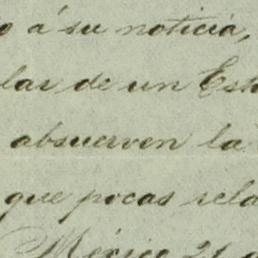 o á su noticia,
las de un Est
absuerven la
que pocas rela
México 21